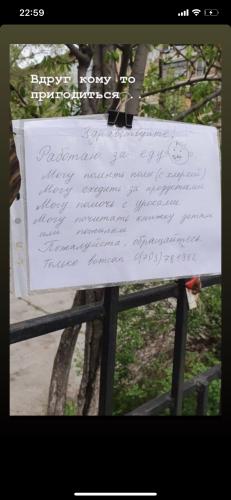 22:59
Вдруг кому то
пригодиться ...
Здравствуйте!
Работаю за еду
Могу помыть полы (с хлоркой)
Могу сходить за продуктами
Могу помочь с уроками
Могу почитать книжку детям
или пожилым
Пожалуйста, обращайтесь
Только вотсап